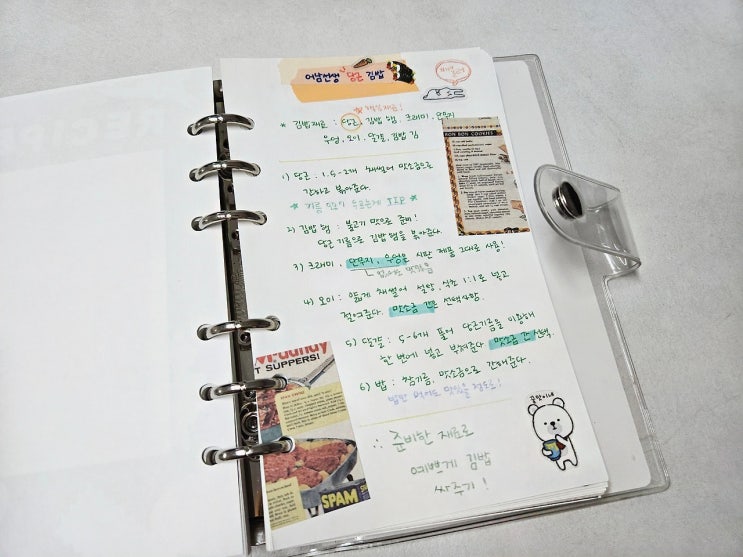 어남선생 당근 김밥
* 김밥재료 : 당근, 김밥 햄, 크래미, 단무지
우엉, 오이, 달걀, 김밥 김
1) 당근 : 1.5-2개 채썰어 맛소금으로
간하고 볶아준다.
BON BON COOKIES
2) 김밥 햄 : 불고기 맛으로 준비!
당근 기름으로 김밥 햄을 볶아준다.
3) 크래미, 단무지, 우엉은 시판 제품 그대로 사용!
없어도 맛있음
4) 오이 : 얇게 채썰어 설탕, 식초 1:1로 넣고
절여준다. 맛소금 간은 선택사항.
5) 달걀 : 5-6개 풀어 당근기름을 이용해
한 번에 넣고 부쳐준다. 맛소금 간 선택.
6) 밥 : 참기름, 맛소금으로 간해준다.
밥만 먹어도 맛있을 정도로!
T SUPPERS!
SPAM
∴ 준비한 재료로
예쁘게 김밥
싸주기!